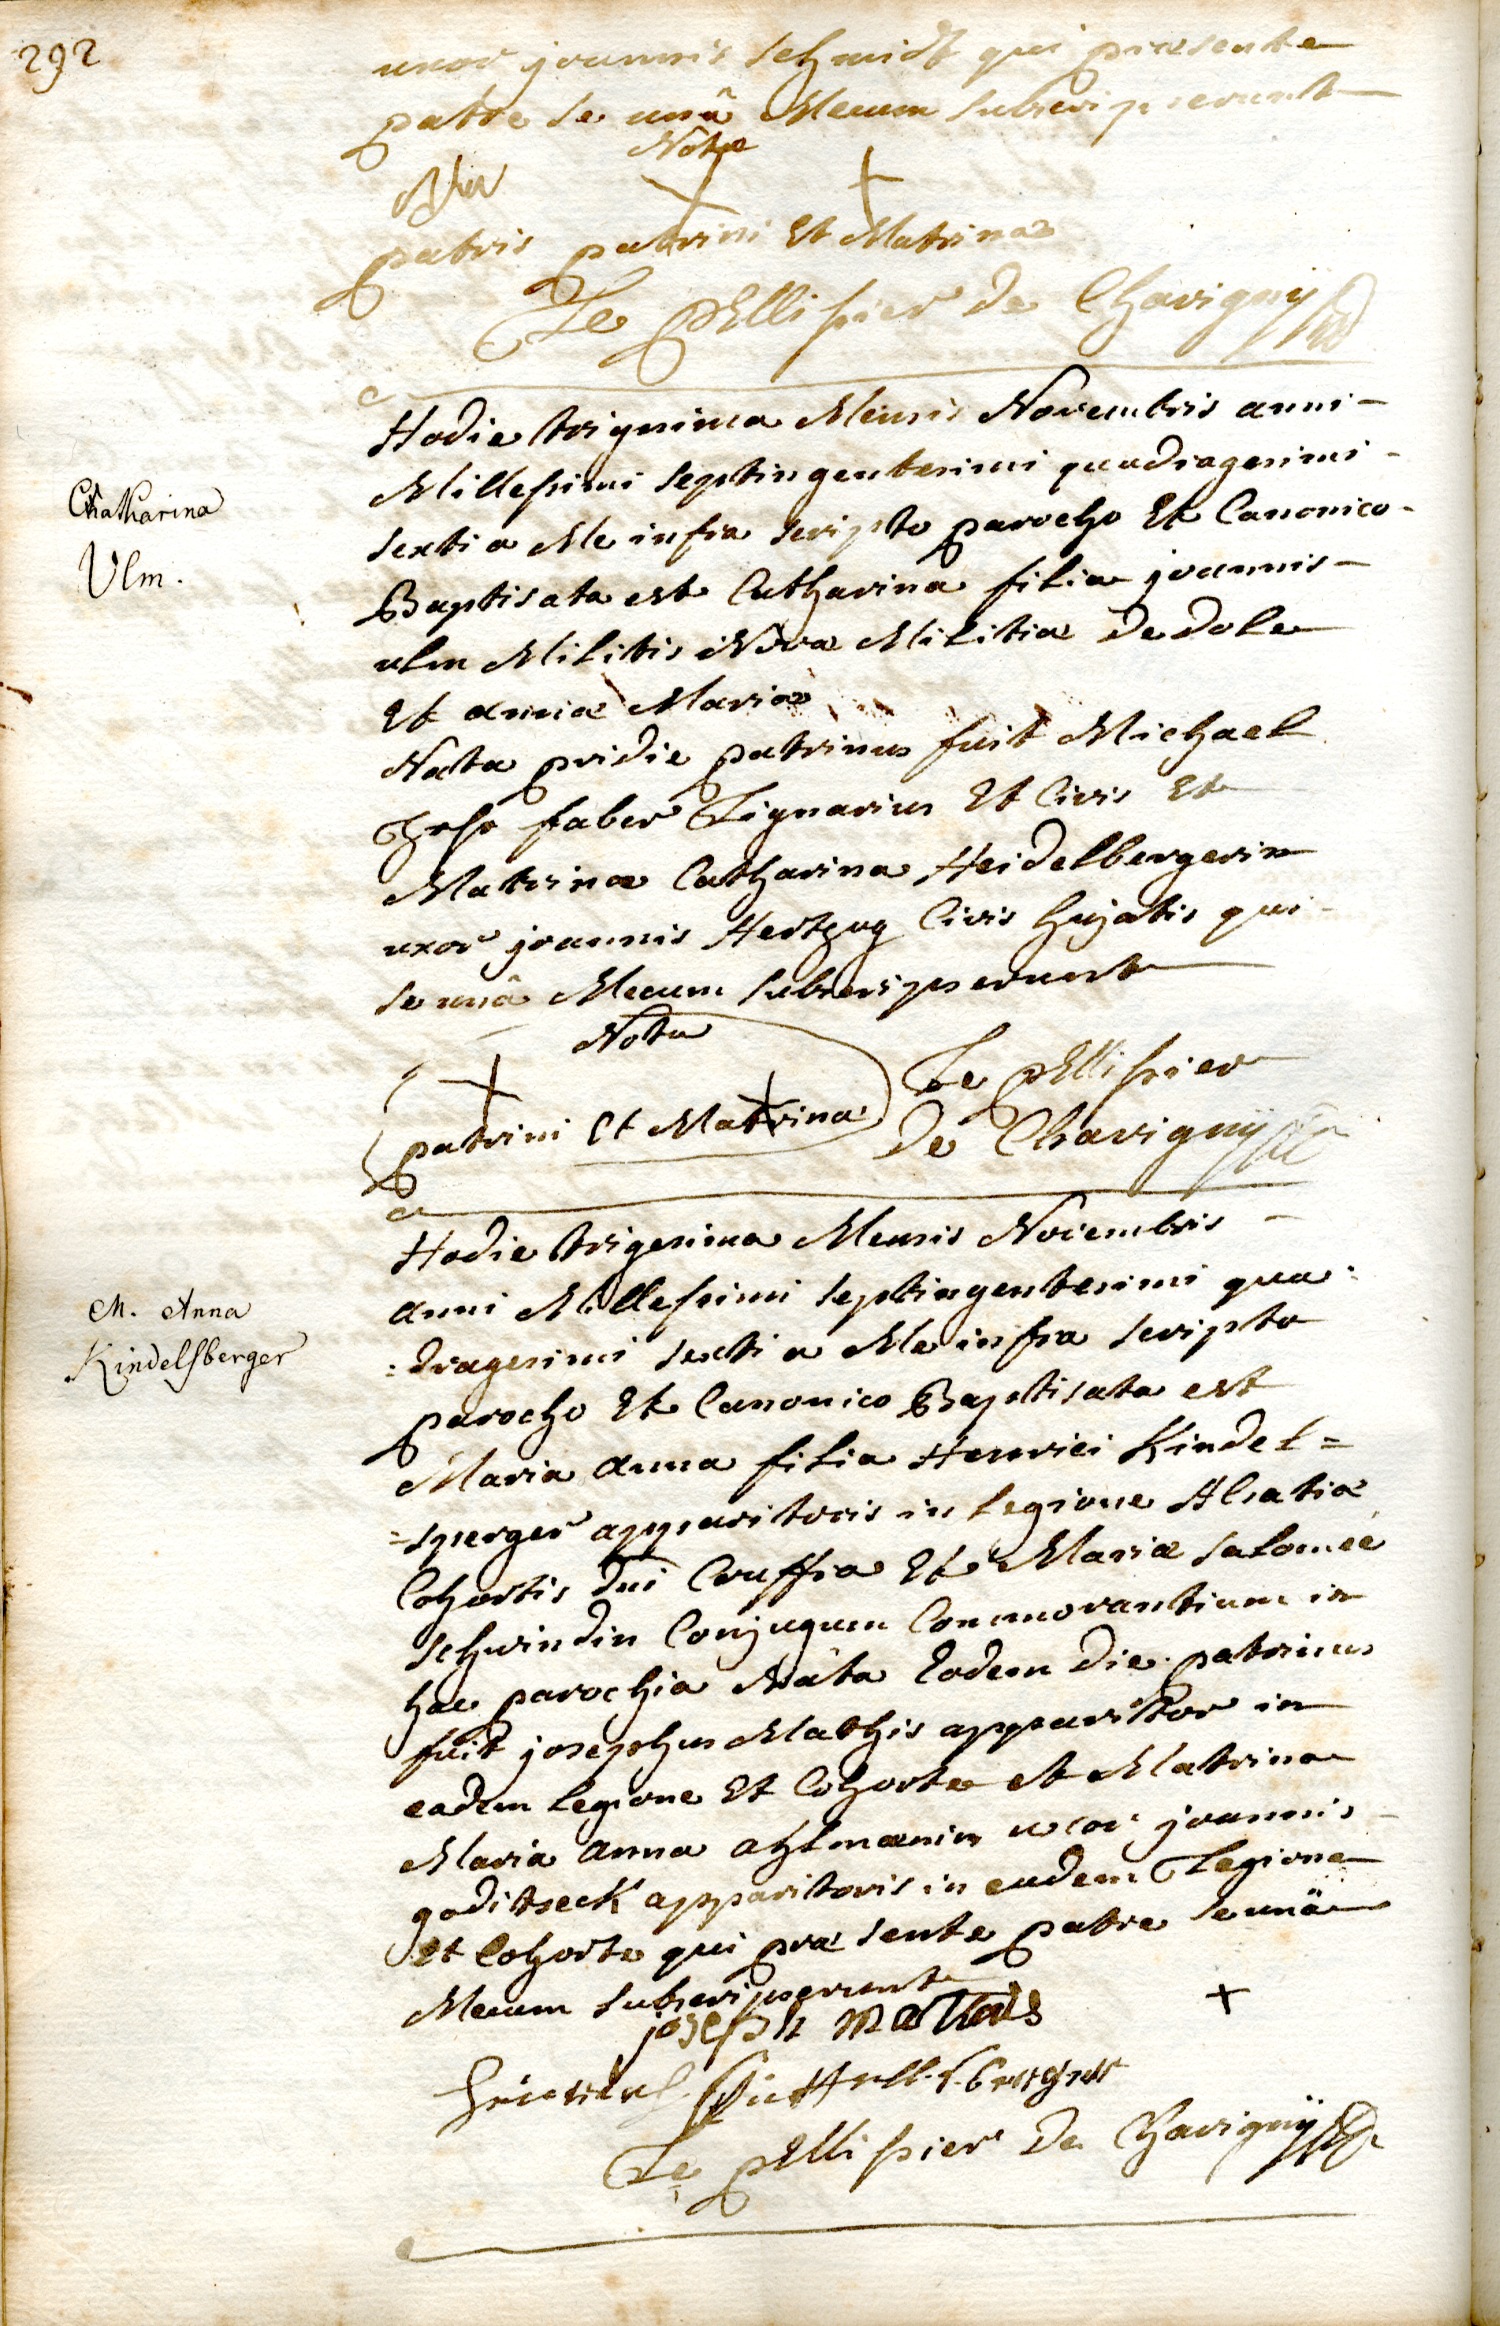 292
uxor joannis schmidt qui præsente
patre se unâ Mecum subscripserunt
Notæ
patris patrini Et Matrinæ
Le pEllissier de Chavigny
Catharina
Ulm.
Hodie trigesima Mensis Novembris anni
Millesimi septingentesimi quadragesimi
sexti a Me infra scripto parocho Et Canonico
Baptisata est Catharina filia joannis
ulm Militis Novæ Militiæ de dole
Et annæ Mariæ
Nata pridie patrinus fuit Michael
faber Lignarius Et Civis Et
Matrina Catharina Heidelbergerin
uxor joannis Hertzog Civis hujatis qui
se unâ Mecum subscripserunt
Nota
patrini Et Matrina
Le pEllissier
de Chavigny
M. Anna
Kindelsberger
Hodie trigesima Mensis Novembris
anni Millesimi septingentesimi qua:
:dragesimi sexti a Me infra scripto
parocho Et Canonico Baptisata est
Maria anna filia Henrici Kindel=
=sperger apparitoris in Legione Alsatiæ
Cohortis dni Et Mariæ saloméé
schwindin Conjugum Commorantium in
hac parochia Nata Eodem die patrinus
fuit josephus Mathis apparitor in
eadem Legione Et Cohorte et Matrina
Maria anna ahlmænin uxor joannis
goditseck apparitoris in eadem Legione
Et Cohorte qui præsente patre se unä
Mecum subscripserunt
joseph mathis
Le pEllissier de Chavigny